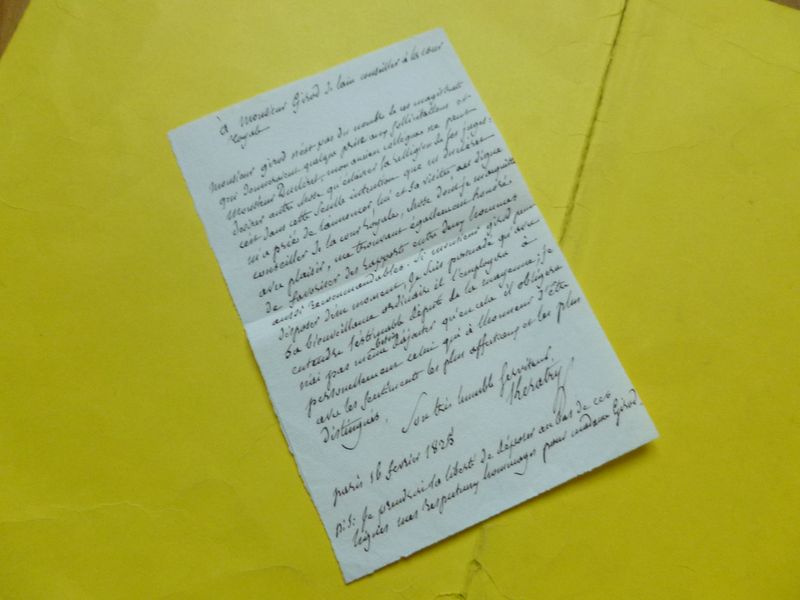 à Monsieur Girod de lain conseiller à la cour
royale
Monsieur girod n'est pas du nombre de ces magistrats
qui donneraient quelque prise aux sollicitations et
Monsieur Duclerc mon ancien collègue ne peut
désirer autre chose qu'éclairer la religion de ses juges:
c'est dans cette seule intention que m
m'a prié de l'annoncer, lui et sa visite au digne
conseiller de la cour Royale, chose dont je m'acquitte
avec plaisir, me trouvant également honoré
de favoriser des rapports entre deux hommes
aussi Recommandables. Si monsieur girod peut
disposer d'un moment, Je suis persuadé qu'avec
sa bienveillance ordinaire il l'employera à
entendre l'estimable député de la mayenne; je
n'ai pas même besoin d'ajouter qu'en cela il obligera
personnellement celui qui à l'honneur d'être
avec les sentiments les plus affectueux et les plus
distingués.
Son très humble serviteur,
Kératry
paris 16 février 1828
P.S: Je prendrai la liberté de déposer au bas de ces
lignes mes Respectueux hommages pour madame Girod.